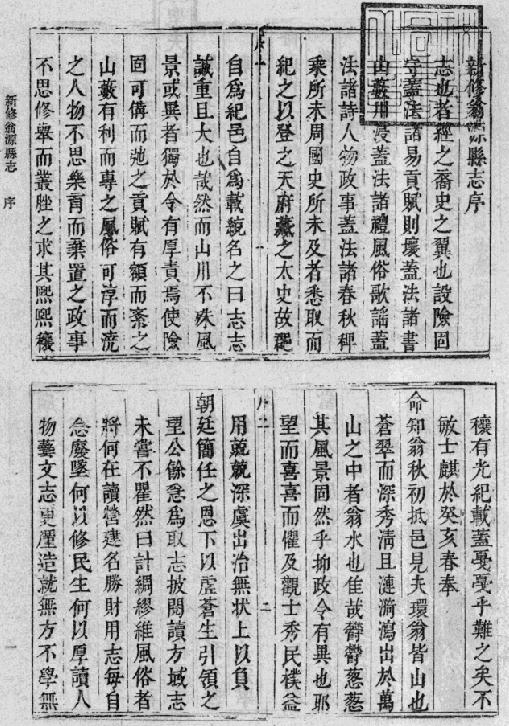 新修翁源縣志序
志也者經之裔史之翼也設險固
守蓋法諸易貢賦則壤蓋法諸書
山藪川浸蓋法諸禮風俗歌謠蓋
法諸詩人物政事蓋法諸春秋稗
乘所未周國史所未及者悉取而
紀之以登之天府藏之太史故從
自為紀邑自為載統名之曰志志
誠重且大也哉然而山川不殊風
景或異者獨於令有厚責焉使險
固可備而弛之貢賦有額而紊之
山藪有利而專之風俗可淳而澆
之人物不思樂育而棄置之政事
不思修舉而叢脞之求其熙熙穰
穰有光紀載蓋戞戞乎難之矣不
敏士麒於癸亥春奉
命知翁秋初抵邑見夫環翁皆山也
蒼翠而深秀清且漣漪瀉出於萬
山之中者翁水也佳哉欝欝葱葱
其風景固然乎抑政令有異也耶
望而喜喜而懼及觀士秀民樸益
用兢兢深虞出治無狀上以負
朝廷簡任之恩下以虛蒼生引領之
望公餘急為取志披閱讀方域志
未嘗不瞿然曰計綢繆維風俗者
將何在讀營建名勝財用志每自
念廢墜何以修民生何以厚讀人
物藝文志更慮造就無方不學無
新修翁源縣志 序
序 一
序 二
一